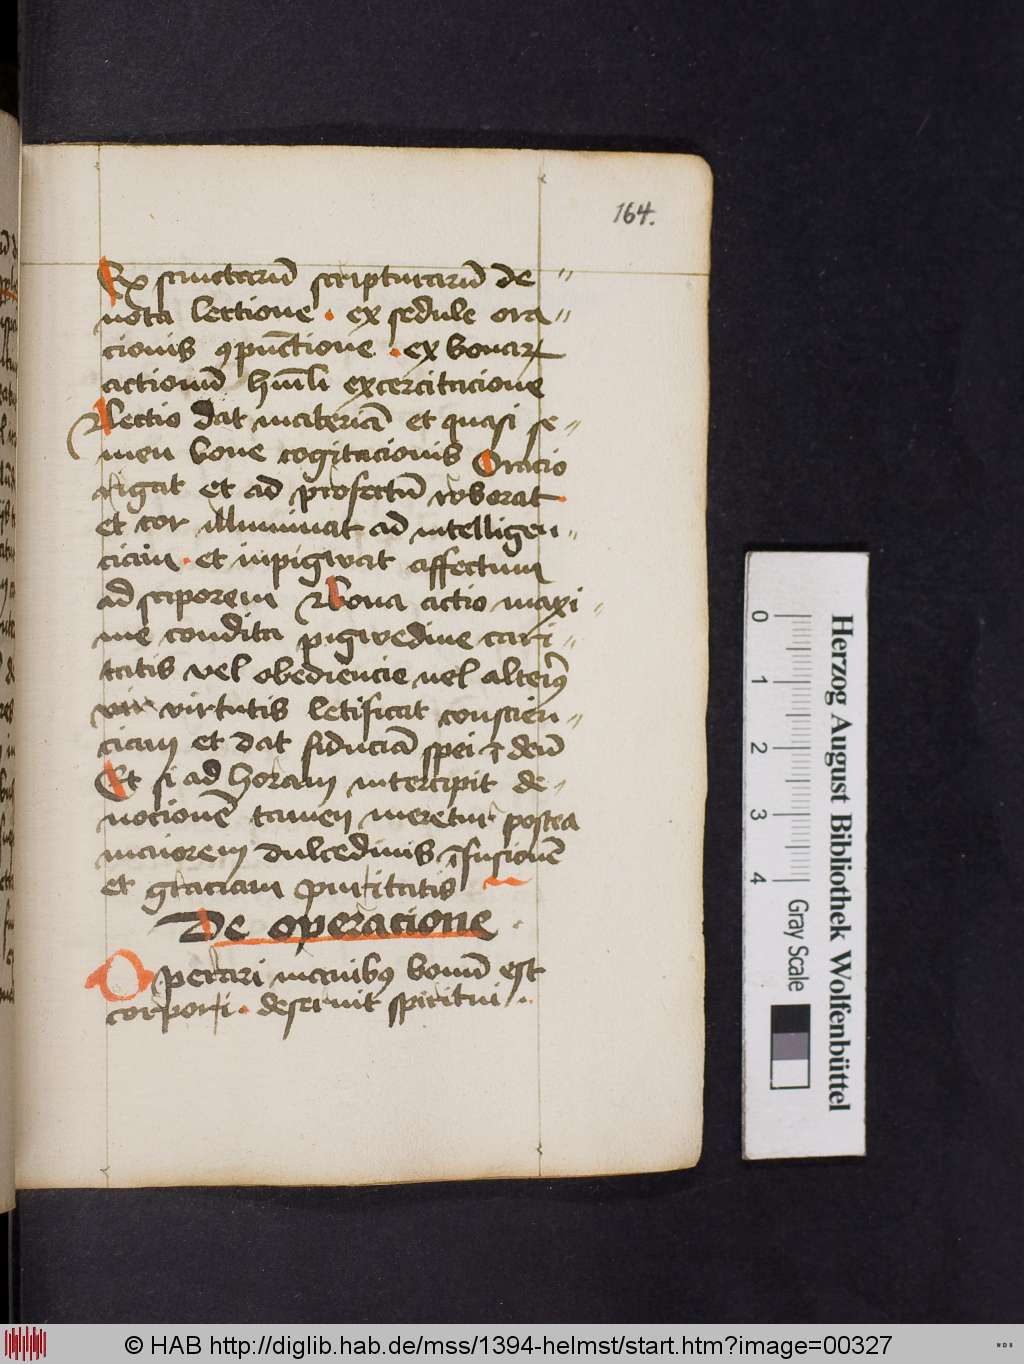 164.
Ex sanctarū scripturarū de〃
uota lectione · ex sedule ora〃
cionis ꝯpūctione · ex bonaꝝ
actionū hūīli excercitacione
Lectio dat materiā et quasi se〃
men bone cogitacionis Oracio
rigat et ad profectū roborat ·
et cor illuminat ad intelligen〃
ciam · et inpigwat affectum
ad saporem Bona actio maxi〃
me condita pigwedine cari〃
tatis vel obediencie uel alteriꝰ
vir virtutis letificat conscien〃
ciam et dat fiduciā spei ī deū
Et si ad horam intercipit de〃
uocionē tamen meretur postea
maiorem dulcedinis īfusionē
et graciam puritatis
De operacione
Operari manibꝰ bonū est
corpori · deseruit spiritui ·
Herzog August Bibliothek Wolfenbüttel
0 1 2 3 4 Gray Scale
© HAB http://diglib.hab.de/mss/1394-helmst/start.htm?image=00327